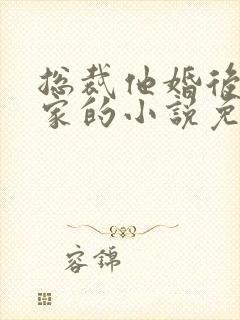 总裁他婚后
家的小說免
容錦